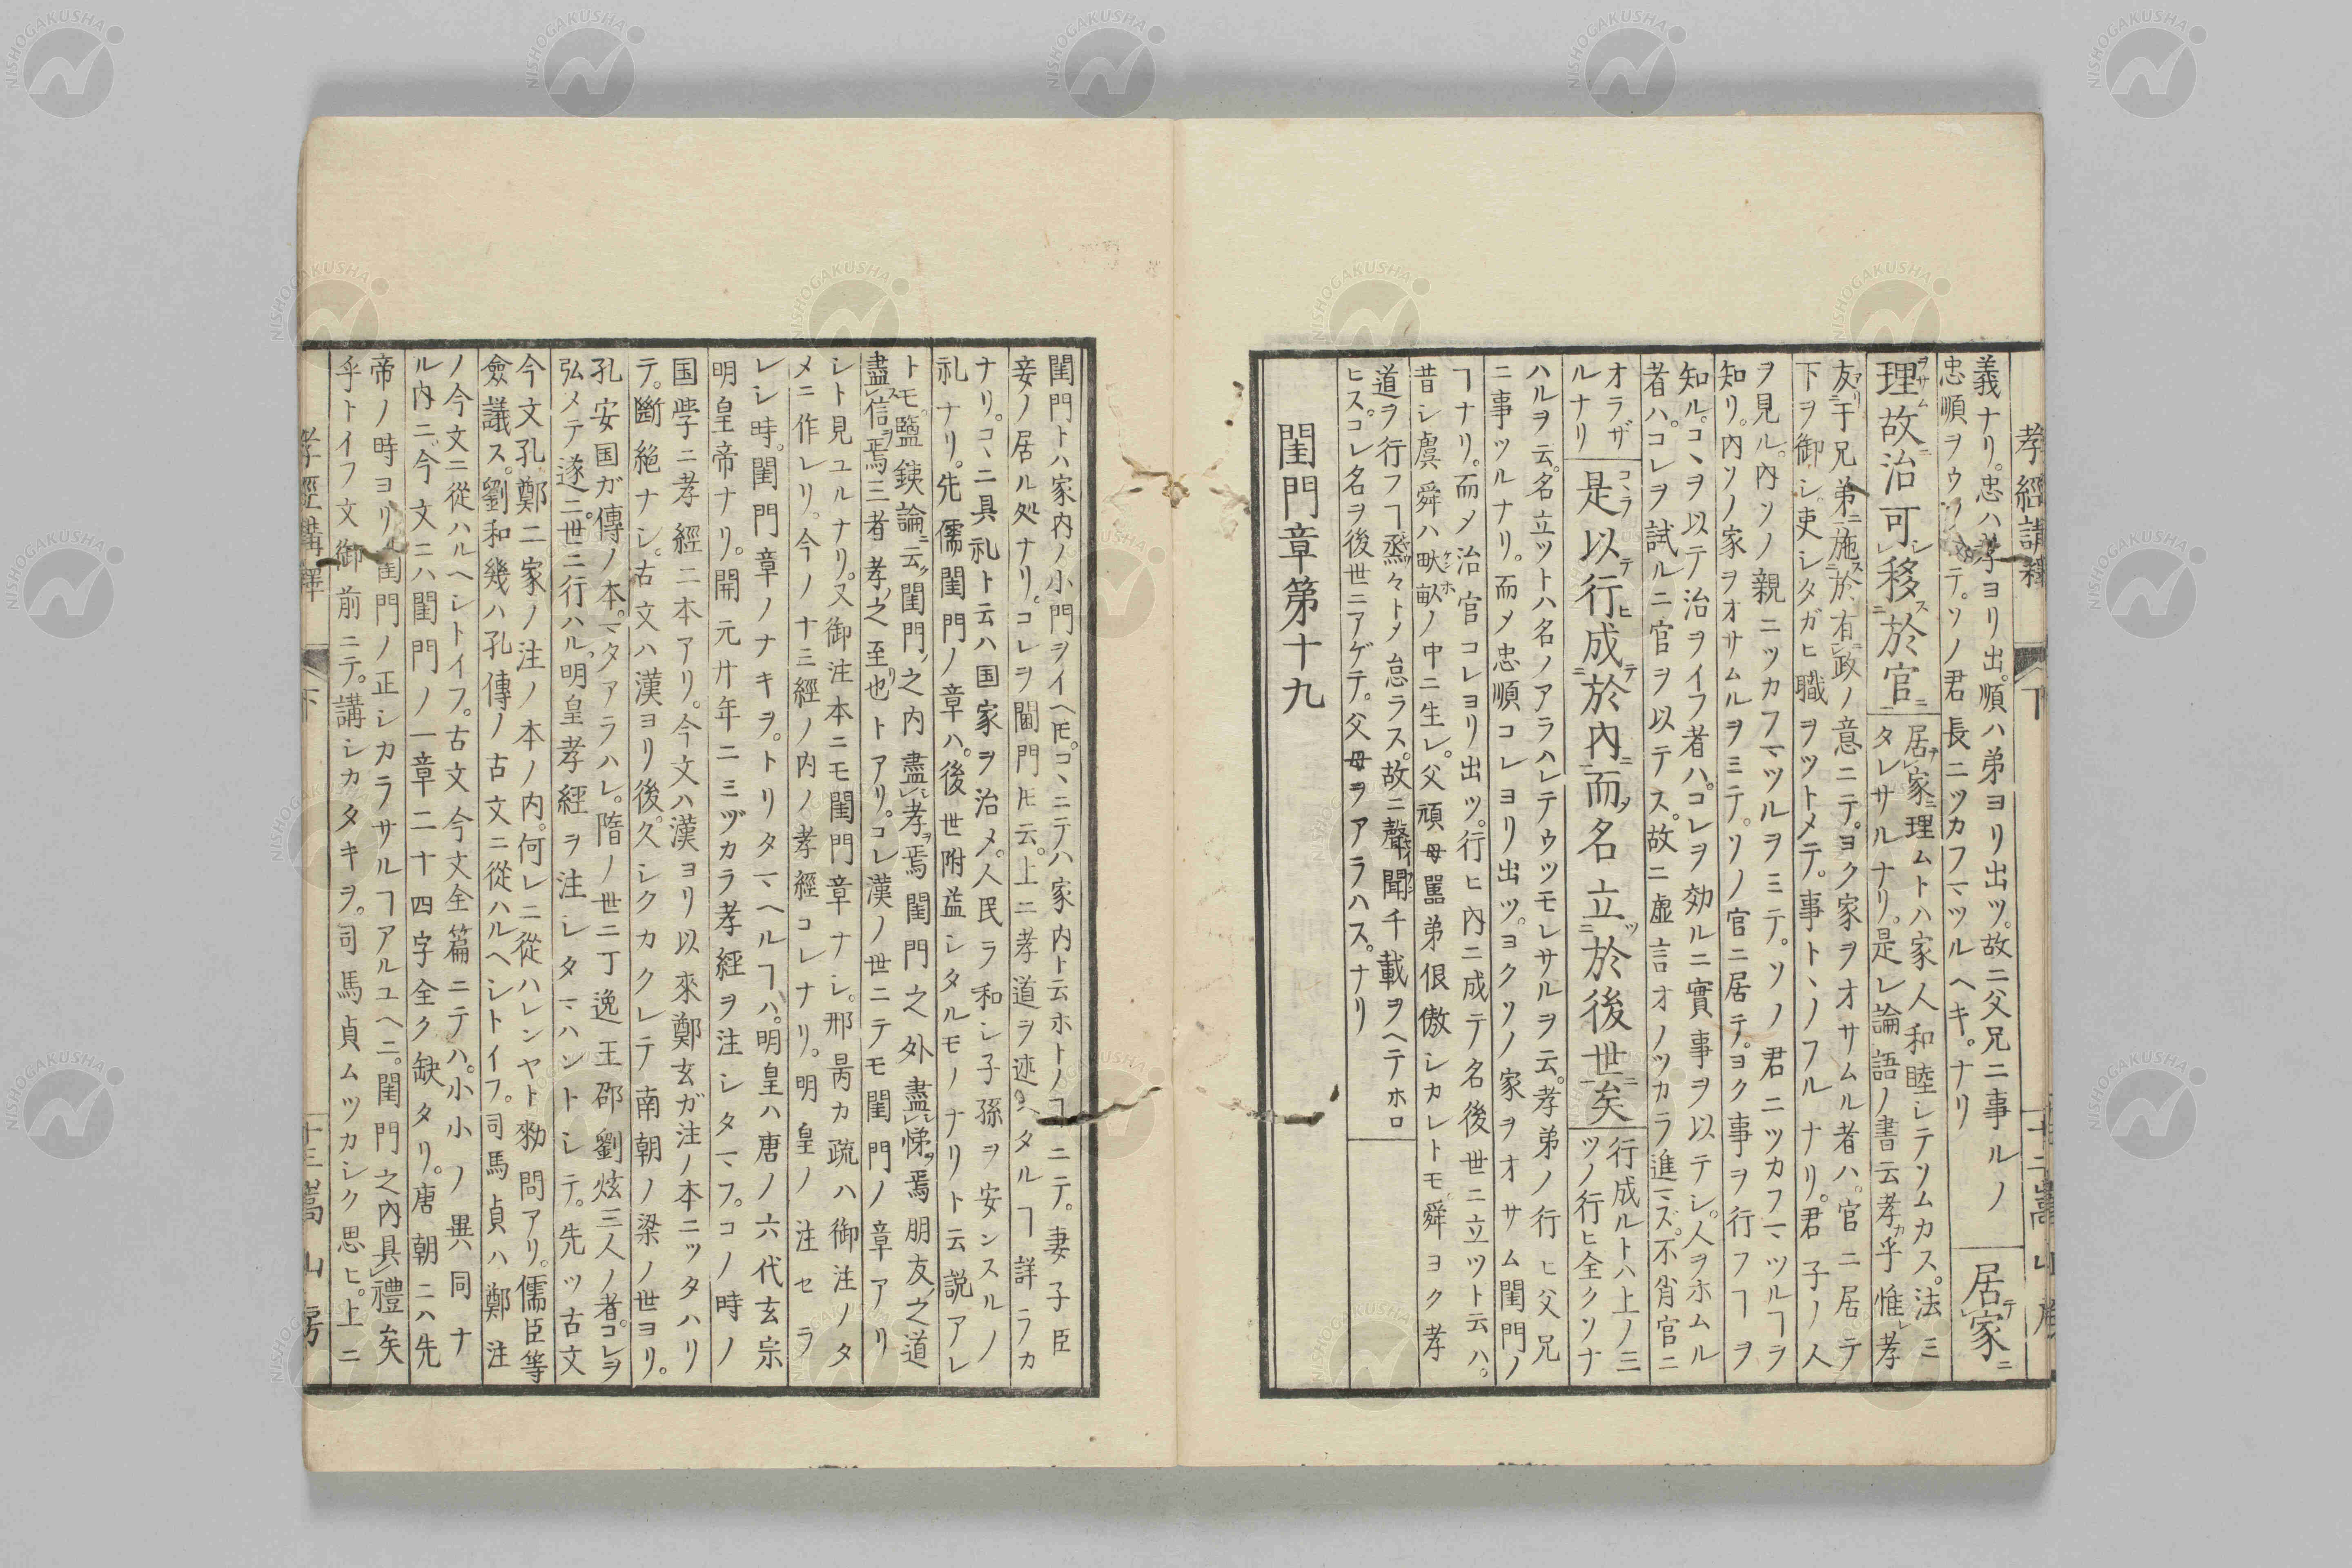 孝經講釋 下 十二 嵩山房
義ナリ。忠ハ孝ヨリ出。順ハ弟ヨリ出ツ。故ニ父兄ニ事ルノ
忠順ヲウツシテ。ソノ君長ニツカフマツルヘキ。ナリ
居家
理故治可移於官
居家理ムトハ家人和睦シテソムカス。法ミ
タレサルナリ。是レ論語ノ書云孝乎惟孝
友于兄弟施於有政ノ意ニテ。ヨク家ヲオサムル者ハ。官ニ居テ
下ヲ御シ吏シタガヒ職ヲツトメテ。事トヽノフルナリ。君子ノ人
ヲ見ル。内ソノ親ニツカフマツルヲミテ。ソノ君ニツカフマツルヿヲ
知リ。内ソノ家ヲオサムルヲミテ。ソノ官ニ居テ。ヨク事ヲ行フヿヲ
知ル。コヽヲ以テ治ヲイフ者ハ。コレヲ効ルニ實事ヲ以テシ。人ヲホムル
者ハ。コレヲ試ルニ官ヲ以テス。故ニ虚言オノツカラ進マズ。不肖官ニ
オラザ
ルナリ
是以行成於内而名立於後世矣
行成ルトハ上ノ三
ツノ行ヒ全クソナ
ハルヲ云。名立ツトハ名ノアラハレテウツモレサルヲ云。孝弟ノ行ヒ父兄
ニ事ツルナリ。而メ忠順コレヨリ出ツ。ヨクソノ家ヲオサム閨門ノ
ヿナリ。而メ治官コレヨリ出ツ。行ヒ内ニ成テ名後世ニ立ツト云ハ。
昔シ虞舜ハ畎畝ノ中ニ生レ。父頑母嚚弟佷傲シカレトモ舜ヨク孝
道ヲ行フヿ烝々トメ怠ラス。故ニ聲聞千載ヲヘテホロ
ヒス。コレ名ヲ後世ニアゲテ。父母ヲアラハス。ナリ
閨門章第十九
閨門トハ家内ノ小門ヲイヘ𪜈。コヽニテハ家内ト云ホトノヿニテ。妻子臣
妾ノ居ル処ナリ。コレヲ閫門𪜈云。上ニ孝道ヲ述ハタルヿ詳ラカ
ナリ。コヽニ具礼ト云ハ国家ヲ治メ。人民ヲ和シ子孫ヲ安ンスルノ
礼ナリ。先儒閨門ノ章ハ。後世附益シタルモノナリト云説アレ
トモ。鹽鉄論ニ云閨門之内盡孝焉閨門之外盡悌焉朋友之道
盡信焉三者孝之至也トアリ。コレ漢ノ世ニテモ閨門ノ章アリ
シト見ユルナリ。又御注本ニモ閨門章ナシ。邢昺カ疏ハ御注ノタ
メニ作レリ。今ノ十三經ノ内ノ孝經コレナリ。明皇ノ注セラ
レシ時。閨門章ノナキヲ。トリタマヘルヿハ。明皇ハ唐ノ六代玄宗
明皇帝ナリ。開元廾年ニミヅカラ孝経ヲ注シタマフ。コノ時ノ
国学ニ孝經二本アリ。今文ハ漢ヨリ以来鄭玄ガ注ノ本ニツタハリ
テ。斷絶ナシ。古文ハ漢ヨリ後。久シクカクレテ南朝ノ梁ノ世ヨリ。
孔安国ガ傳ノ本。マタアラハレ。隋ノ世ニ丁逸王邵劉炫三人ノ者。コレヲ
弘メテ遂ニ世ニ行ハル。明皇孝經ヲ注シタマハントシテ。先ツ古文
今文孔鄭二家ノ注ノ本ノ内。何レニ從ハレンヤト勅問アリ。儒臣等
僉議ス。劉和幾ハ孔傳ノ古文ニ從ハルヘシトイフ。司馬貞ハ鄭注
ノ今文ニ從ハルヘシトイフ。古文今文全篇ニテハ。小小ノ異同ナ
ル内ニ。今文ニハ閨門ノ一章二十四字全ク缺タリ。唐朝ニハ先
帝ノ時ヨリ閨門ノ正シカラサルヿアルユヘニ。閨門之内具禮矣
乎トイフ文御前ニテ。講シカタキヲ。司馬貞ムツカシク思ヒ。上ニ
孝經講釋 下 十三 嵩山房
NISHOGAKUSHA